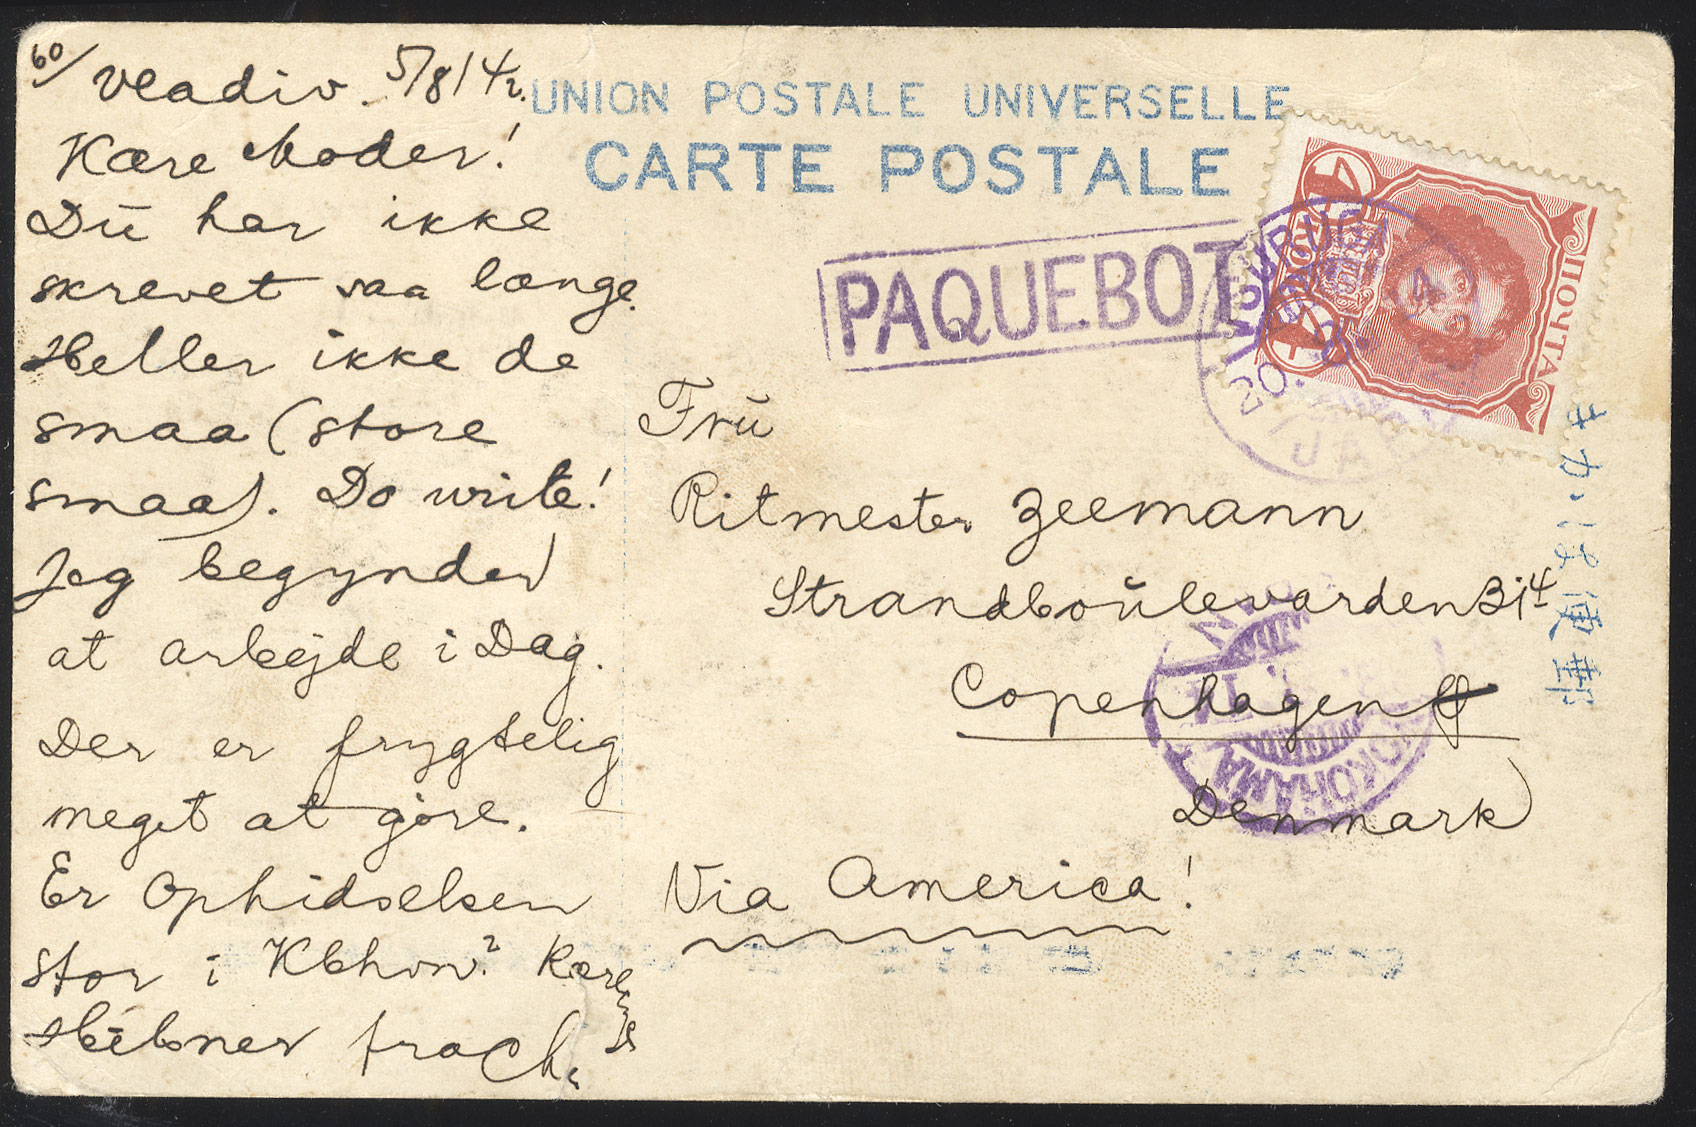 60/ Vladiv. 5/8 14
Kære Moder!
Dū har ikke
skrevet saa længe.
Heller ikke de
smaa (store
smaa). Do write!
Jeg begynder
at arbejde i Dag.
Der er frygtelig
meget at gøre.
Er Ophidselsen
stor i Kbhvn? Kære
Hilsner
UNION POSTALE UNIVERSELLE
CARTE POSTALE
PAQUEBOT
ПОЧТА
4
4
Frū
Ritmester Zeemann
Stranboūlevarden
Copenhagen
Denmark
Via America!
YOKOHAMA
JAPAN
郵便はかき